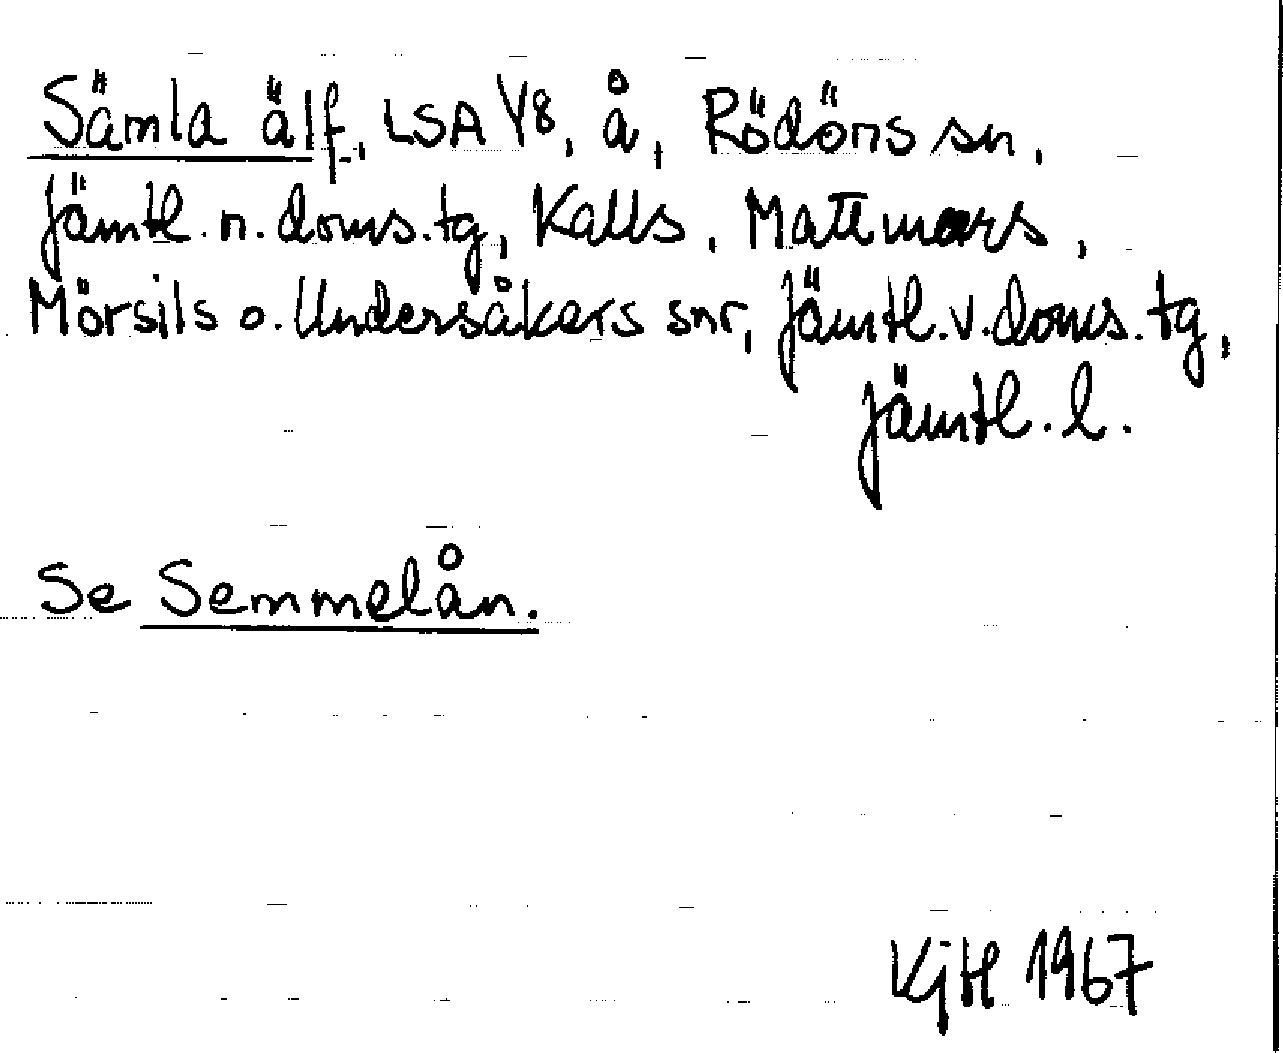 Sämla älf, LSA Y8, å, Rödöns sn,
Jämtl. n. doms. tg, Kalls, Mattmars,
Mörsils o. Undersåkers snr, Jämtl. v. doms. tg,
Jämtl. l.
Se Semmelån.
KjH 1967